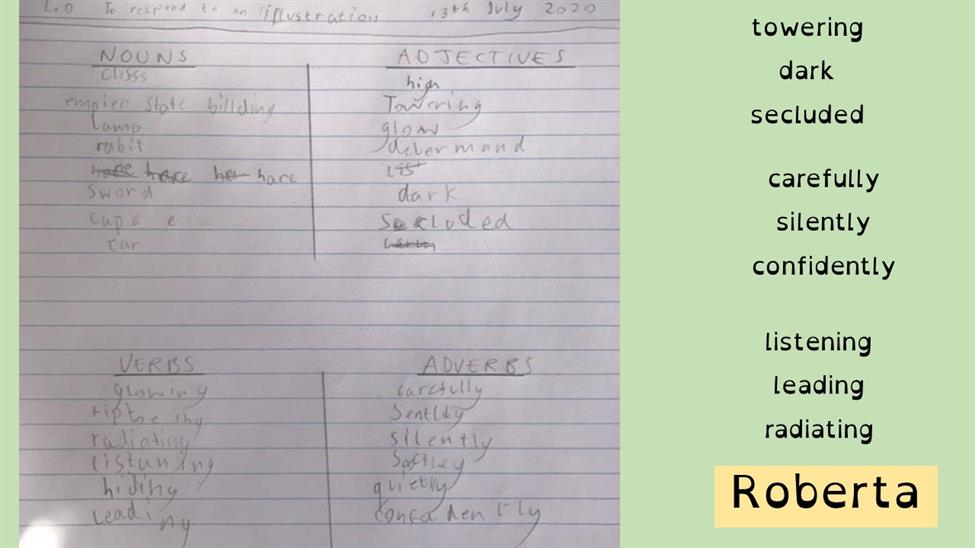 L.O To respond to an illustration 13th July 2020
NOUNS
clisss
empier state billding
lamp
rabit
hare hare
sword
car
ADJECTIVES
high
Towering
glow
debermand
dark
Secluded
VERBS
glowing
radiating
listaning
hiding
leading
ADVERBS
carefully
Sentley
silently
Softley
quietly
confadently
towering
dark
secluded
carefully
silently
confidently
listening
leading
radiating
Roberta